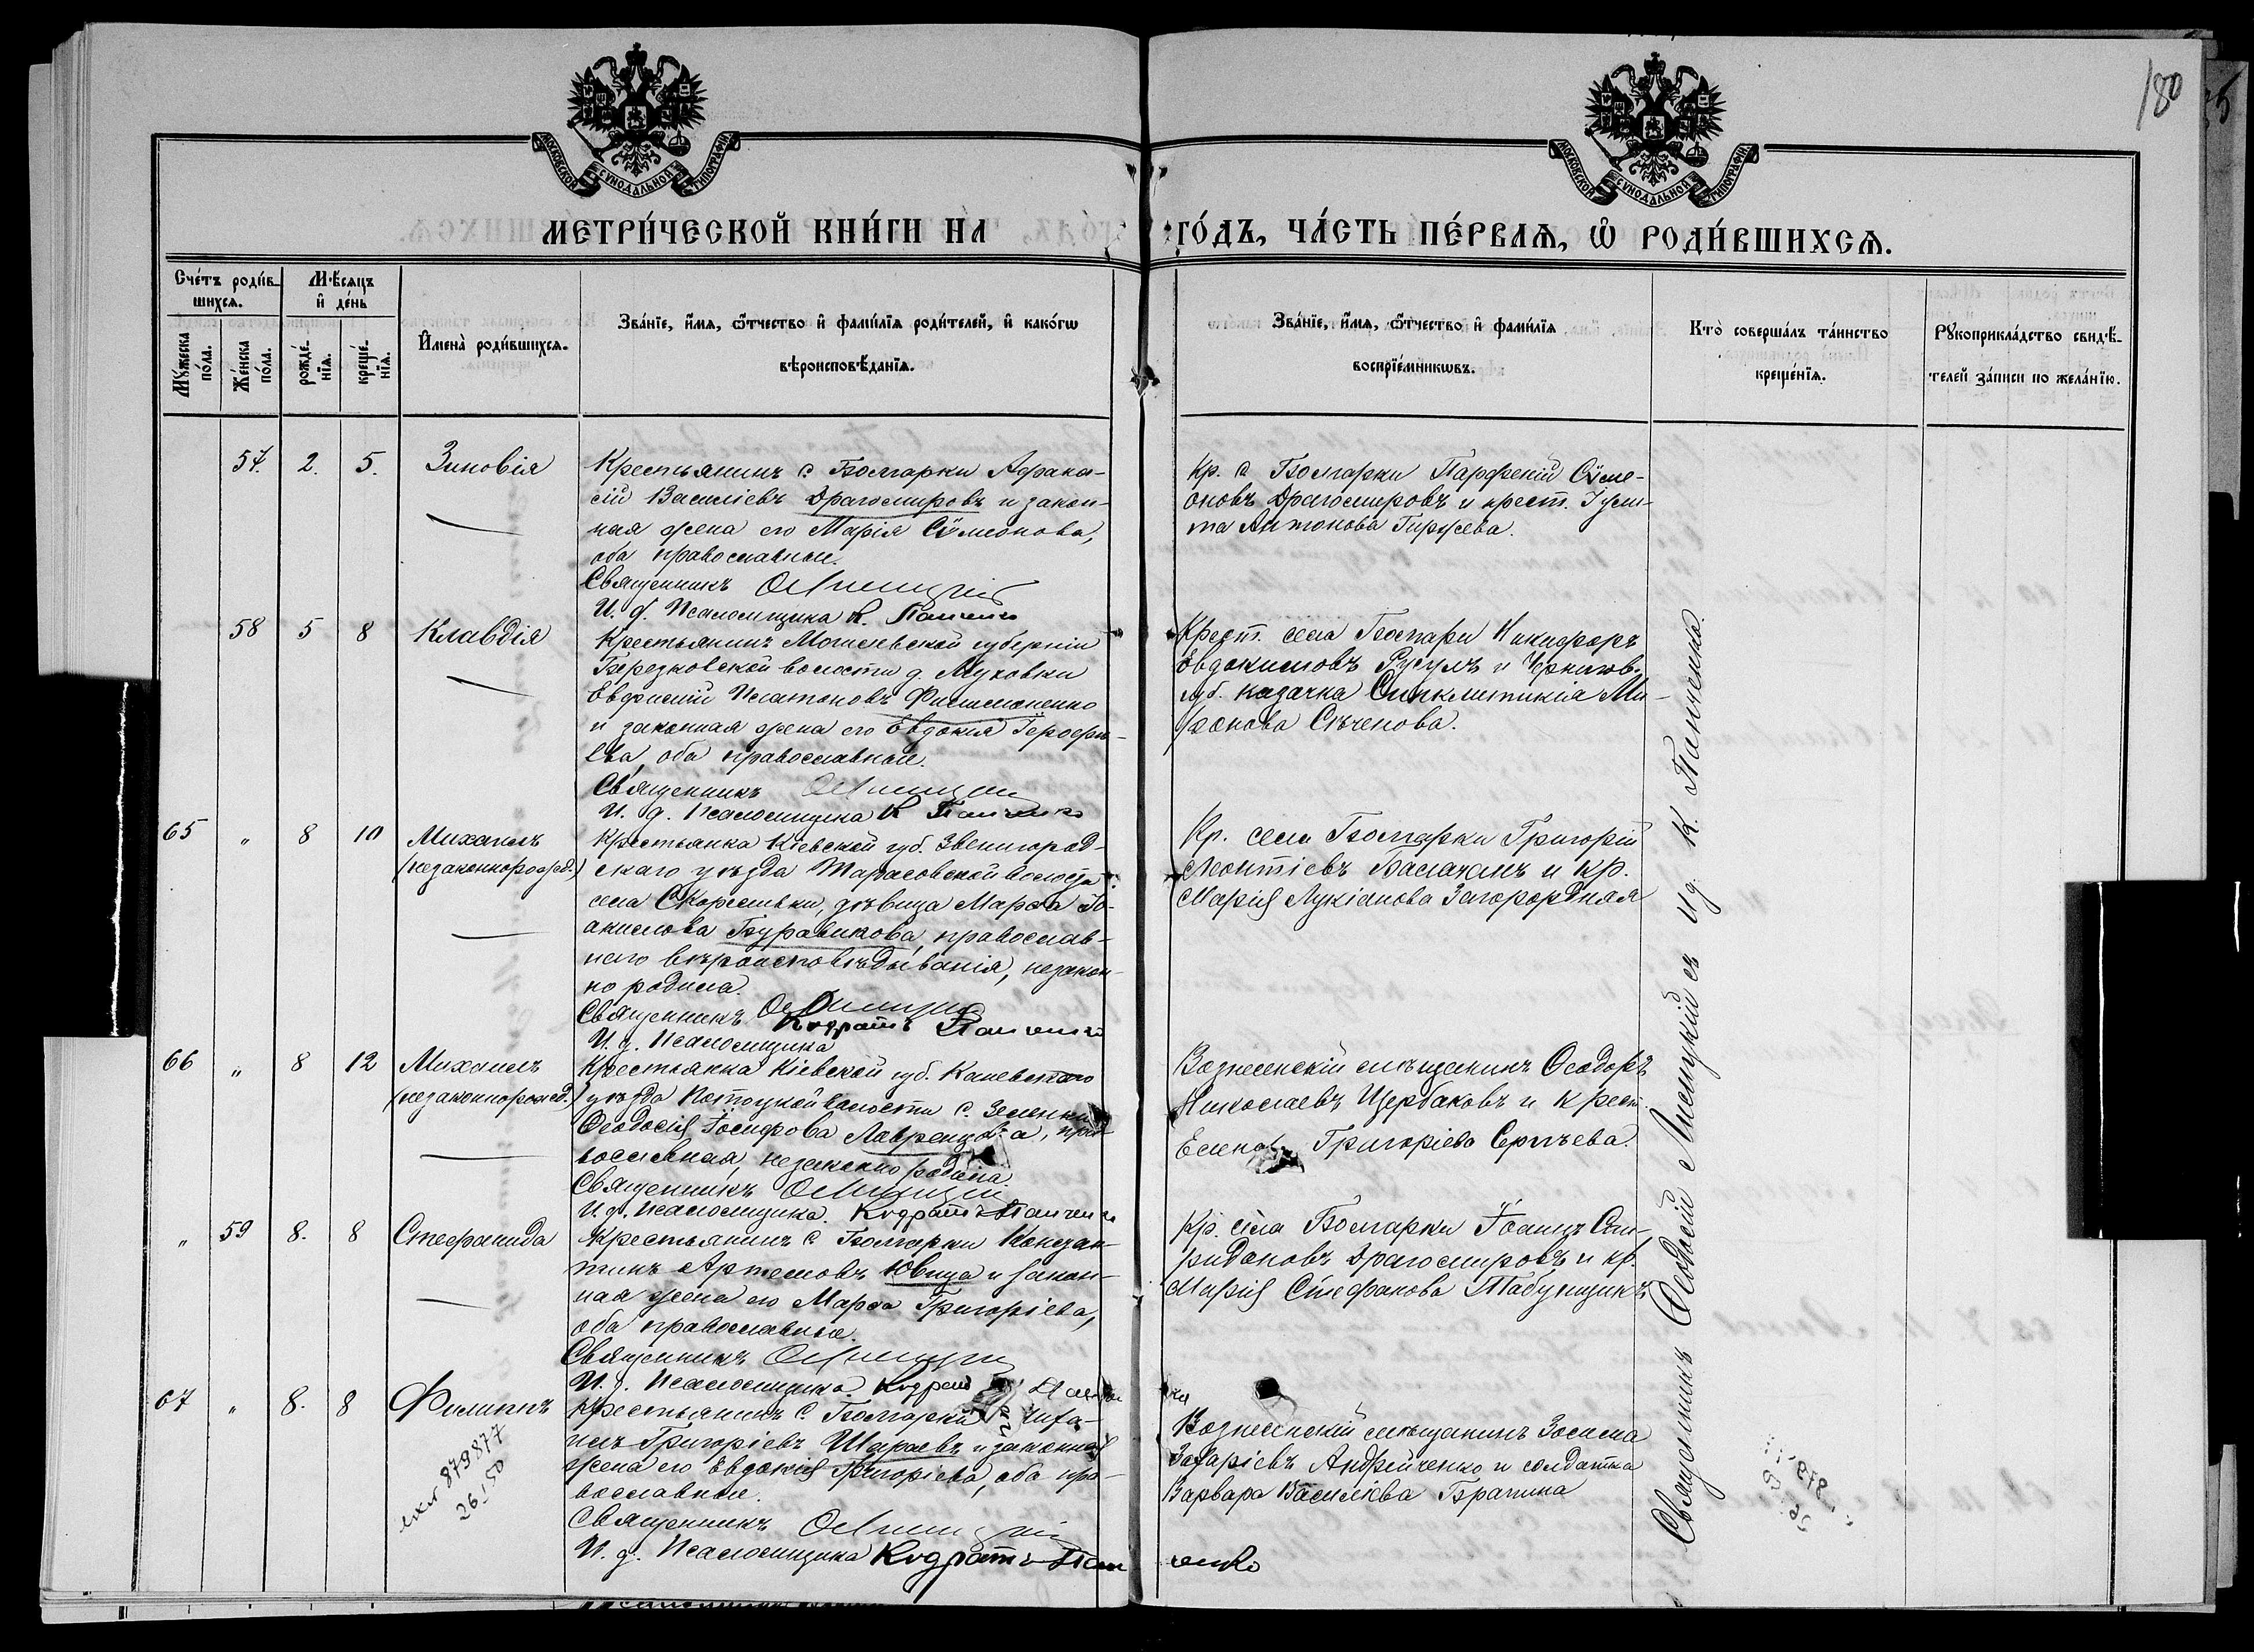 180
МОСКОВСКОЙ СѴНОДАЛЬНОЙ ТИПОГРАФІИ
МОСКОВСКОЙ СѴНОДАЛЬНОЙ ТИПОГРАФІИ
МЕТРИ́ЧЕСКОЙ КНИ́ГИ НА ГО́ДЪ, ЧА́СТЬ ПЕ́РВАѦ, Ѡ РОДИ́ВШИХСѦ.
Сче́тъ роди́в-
шихсѧ.
Мꙋ́жеска по́ла.
Же́нска по́ла.
Мѣ́сяцъ
и҆ де́нь
рожде́-
нїѧ.
креще́-
нїѧ.
И҆мена̀ роди́вшихсѧ.
Зва́нїе, и҆́мѧ, ѻ҆́тчество и҆ фами́лїѧ роди́телей, и҆ како́гѡ
вѣроисповѣ́данїѧ.
Зва́нїе, и҆́мѧ, ѻ҆́тчество и҆ фами́лїѧ
воспрїе́мникѡвъ.
Кто̀ соверша́лъ та́инство
креще́нїѧ.
Рꙋкоприкла́дство свидѣ́-
телей за́писи по жела́нїю.
57. 2. 5. Зиновія
Крестьянинъ с. Болгарки Афана-
сій Василіевъ Драгомировъ и закон-
ная жена его Марія Сѵмеонова,
оба православные.
Священникъ
И. д. Псаломщика К. Панченко
Кр. с Болгарки Парфеній Сѵме-
оновъ Драгомировъ и крест. Іули-
та Антонова Гиржева.
58 5 8 Клавдія
Крестьянинъ Могилевской губерніи
Березковской волости д. Муховки
Евфимій Платоновъ Филимоненко
и законная жена его Евдокія Герофе-
ева, оба православные.
Священникъ
И. д. Псаломщика К Панченко
Крест. села Болгарки Никифоръ
Евдокимовъ Русулъ и Чернигов.
губ. казачка Синклитикія Ми-
ронова Сѣченова.
65 " 8 10 Михаилъ
(незаконнорожд.)
Крестьянка Кіевской губ. Звенигород-
скаго уѣзда Тарасовской волости
села Скоре, дѣвица Марѳа Іо-
акимова Буравикова, православ-
наго вѣроисповѣдыванія, незакон-
но родила.
Священникъ
И. д. Псаломщика Кодратъ Панченко
Кр. села Болгарки Григорій
Леонтіевъ Балачанъ и кр.
Марія Лукіанова Загорордняя
66 " 8 12 Михаилъ
(незаконнорожд.)
Крестьянка Кіевской губ. Каневскаго
уѣзда Потоцкой волости с. Зеленки
Ѳеодосія Іосифова Лавренцова, пра-
вославная, незаконно родила.
Священникъ
И. д. Псаломщика. Кодратъ Панченко
Вознесенскій мѣщанинъ Ѳеодоръ
Николаевъ Щербаковъ и крест.
Елена Григоріева Сергѣева.
" 59 8. 8 Стефанида
Крестьянинъ с. Болгарки Констан-
тинъ Артемовъ Ювица и закон-
ная жена его Марѳа Григоріева,
оба православные.
Священникъ
И. д. Псаломщика Кодратъ Панченко
Кр. села Болгарки Іоаннъ Спи-
ридоновъ Драгомировъ и кр.
Марія Стефанова Табунщикъ
67 " 8. 8 Филиппъ
879877
26 50
Крестьянинъ с. Болгарки
Григоріевъ Шараевъ и законная
жена его Евдокія Григоріева, оба пра-
вославные.
Священникъ
И. д. Псаломщика Кодратъ Панченко
Вознесенскій мѣщанинъ Зосима
Захаріевъ Андрейченко и солдатка
Варвара Васильева Брагина
Священникъ Ѳеодосій Лисицкій съ и д. К. Панченко.